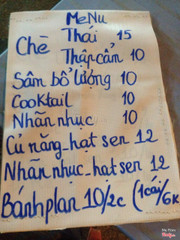 MeNu
Chè Thái 15
Thập cẩm 10
Sâm bổ lượng 10
Cooktail 10
Nhãn nhục 10
Củ năng-hạt sen 12
Nhãn nhục-hạt sen 12
Bánh plan 10/2c (1cái/6k